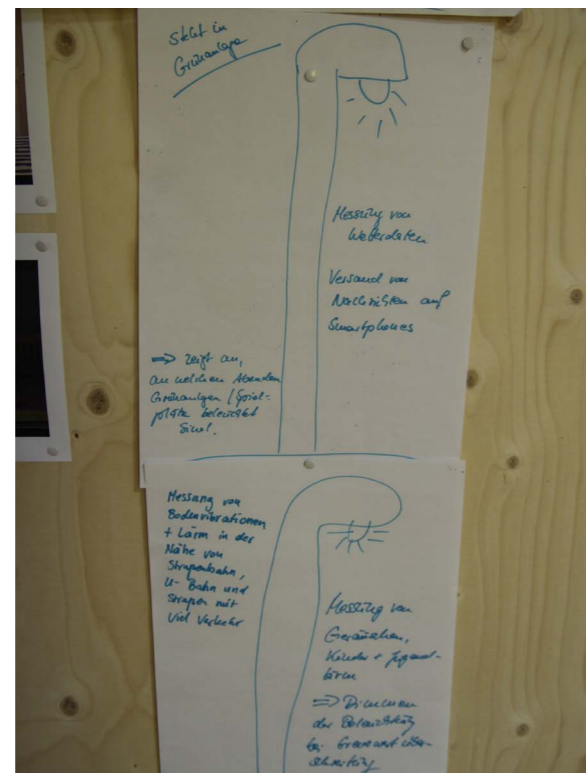 steht in
Grünanlage
Messung von
Wetterdaten
Versand von
Nachrichten auf
Smartphones
=> zeigt an,
an welchen Abenden
Grünanlagen / Spiel-
plätze beleuchtet
sind.
Messung von
Bodenvibrationen
+ Lärm in der
Nähe von
Straßenbahn,
U-Bahn und
Straßen mit
viel Verkehr
Messung von
Geräuschen,
Kinder + Jugend-
lärm
=> Dimmen
der Beleuchtung
bei Grenzwertüber-
schreitung